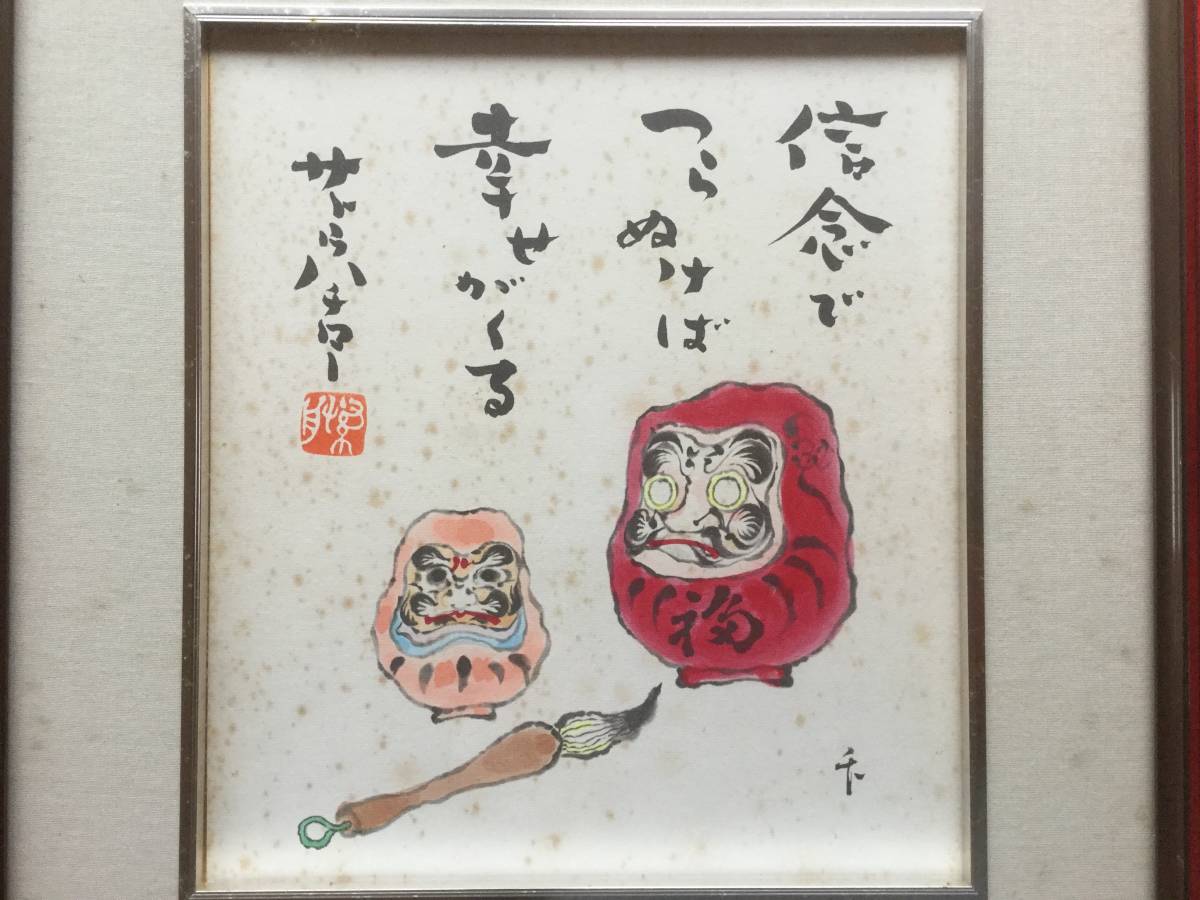 信念で
つらぬけば
幸せがくる
サトウハチロー
福